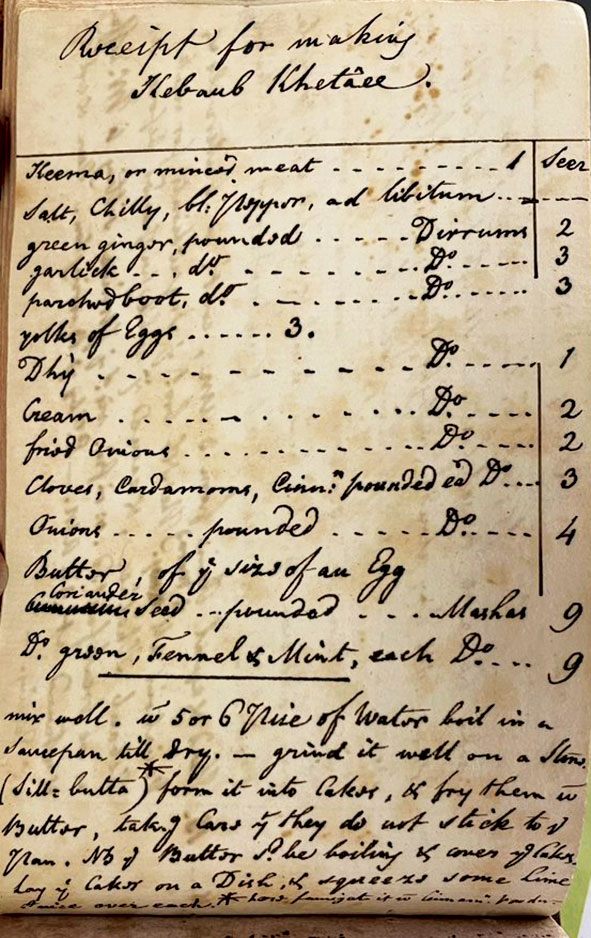 Receipt for making
Kebaub Khetâee.
Seer
Keema, or minced meat - - - - - - - - - 1
Salt, Chilly, bl: Pepper, ad libitum - - - - -
green ginger, pounded - - - - - Dirrums 2
garlick - - . do - - - - - - - - Do - - - - - 3
parched boot, do - - - - - - - Do - - - - - 3
yolks of Eggs - - - - - - 3.
Dhy - - - - - - - - - - Do - - - - 1
Cream - - - - - - - - - - Do - - - - 2
fried Onions - - - - - - - - - - Do - - - - 2
Cloves, Cardamoms, Cinn:n pounded ea Do - - - 3
Onions - - - - - pounded - - - - - Do - - - - 4
Butter, of ye size of an Egg
Coriander seed - - pounded - - - - Mashas 9
Do green, Fennel & Mint, each Do - - - - 9
mix well. w 5 or 6 of Water boil in a
saucepan till dry. — grind it well on a Stone
(Sill=butta)* form it into Cakes, & fry them w
Butter, takg Care yt they do not stick to ye
Pan. NB ye Butter sd be boiling & cover ye Cakes.
Lay ye Cakes on a Dish, & squeeze some lime
Juice over each. * here fumigat it w